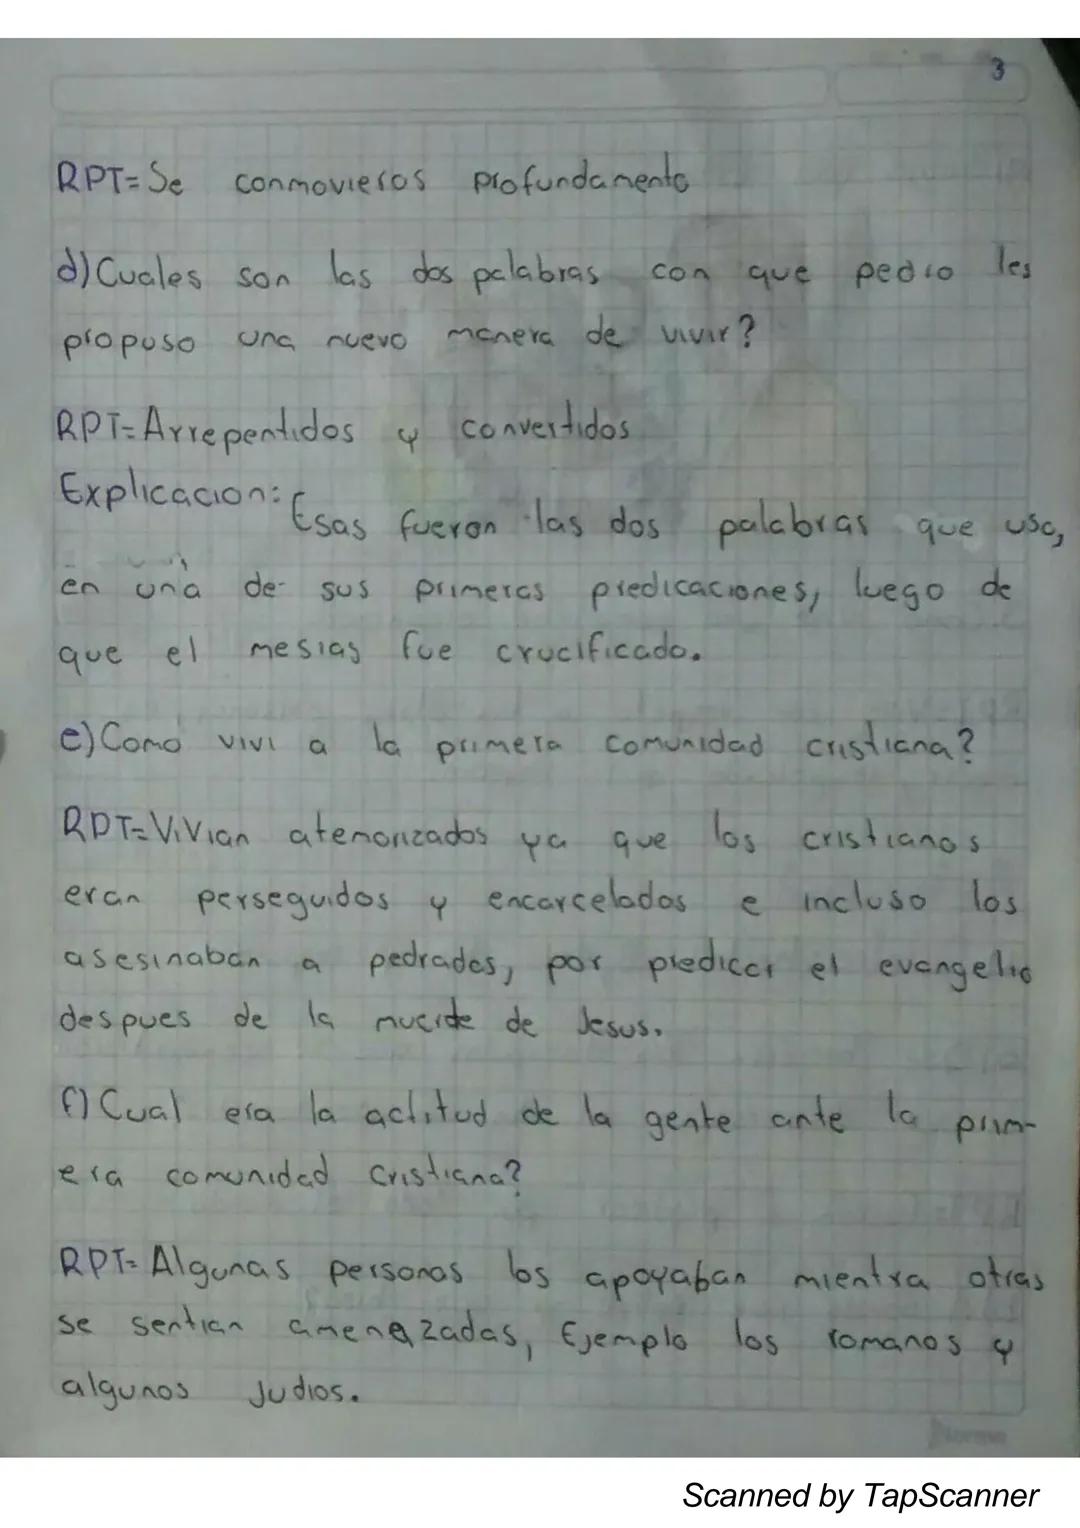 3
RPT= Se conmovieros profundamento
d) Cuales son las dos palabras con que pedro les
propuso una nuevo manera de vivir?
RPT= Arrepentidos y convertidos
Explicacion: Esas fueron las dos palabras que uso,
en una de sus primeras predicaciones, luego de
que el mesias fue crucificado.
e) Como vivi a la primera comunidad cristiana?
RPT= Vivian atemorizados ya que los cristianos
eran perseguidos y encarcelados e incluso los
asesinaban a pedradas, por predicar el evangelio
despues de la muerde de Jesus.
f) Cual era la actitud de la gente ante la prim-
era comunidad cristiana?
RPT= Algunas personas los apoyaban mientra otras
se sentian amenazadas, Ejemplo los romanos y
algunos Judios.
Norma
Scanned by TapScanner